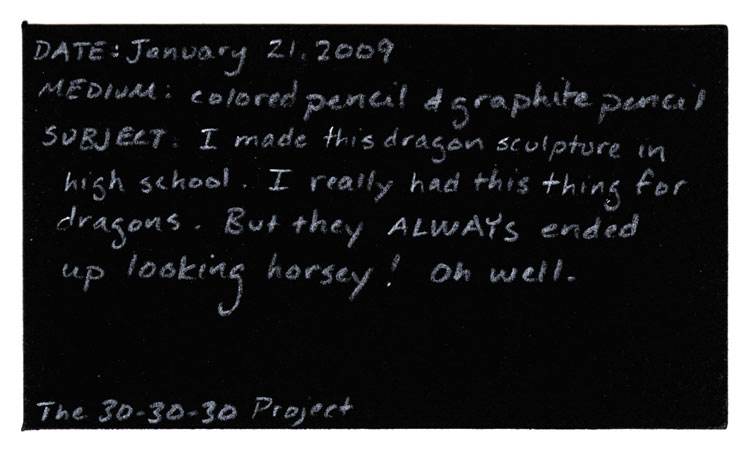 DATE: January 21, 2009
MEDIUM: colored pencil & graphite pencil
SUBJECT: I made this dragon sculpture in
high school. I really had this thing for
dragons. But they ALWAYS ended
up looking horsey! Oh well.
The 30-30-30 Project